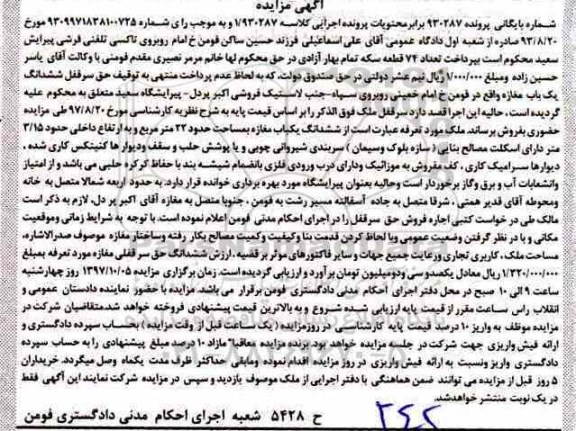 آگهی مزایده
شماره بایگانی پرونده ۹۳۰۲۸۷ برابر محتویات پرونده اجرایی کلاسه ۱/۹۳۰۲۸۷ و به موجب رای شماره ۹۳۰۹۹۷۱۸۳۸۱۰۰۷۲۵ مورخ
۹۳/۸/۲۰ صادره از شعبه اول دادگاه عمومی آقای علی اسماعیلی فرزند حسین ساکن فومن خ امام روبروی تاکسی تلفنی فرشی پیرایش
سعید محکوم است بپرداخت تعداد ۷۴ قطعه سکه تمام بهار آزادی در حق محکوم لها خانم مرمر نصیری مقدم فومنی با وکالت آقای یاسر
حسین زاده ومبلغ ۱/۰۰۰/۰۰۰ ریال نیم عشر دولتی در حق صندوق دولت، که به لحاظ عدم پرداخت منتهی به توقیف حق سرقفل ششدانگ
یک باب مغازه واقع در فومن خ امام خمینی روبروی سپاه-جنب لاستیک فروشی اکبر پردل- پیرایشگاه سعید متعلق به محکوم علیه
گردیده است، حالیه این اجرا قصد دارد سرقفل ملک فوق الذکر را بر اساس قیمت پایه به شرح نظریه کارشناسی مورخ ۹۷/۸/۲۰ طی مزایده
حضوری بفروش برساند. ملک مورد تعرفه عبارت است از ششدانگ یکباب مغازه بمساحت حدود ۲۲ متر مربع و به ارتفاع داخلی حدود ۳/۱۵
متر دارای اسکلت مصالح بنایی ( سازه بلوک وسیمان ) سربندی شیروانی چوبی و با پوشش حلب و سقف ودیوار ها کنیتکس کاری شده ،
دیوارها سرامیک کاری ، کف مفروش به موزائیک ودارای درب ورودی فلزی بانضمام شیشه بند با حفاظ کرکره حلبی می باشد و از امتیاز
وانشعابات آب و برق وگاز برخوردار است وحالیه بعنوان پیرایشگاه مورد بهره برداری خوانده قرار دارد. به حدود اربعه شمالا متصل به خانه
ومحوطه آقای قدیر همتی ، شرقا متصل به جاده آسفالته مسیر رشت به فومن ، جنوبا متصل به مغازه آقای اکبر پر دل، لازم به ذکر است
مالک طی در خواست کتبی اجاره فروش حق سرقفل را در اجرای احکام مدنی فومن اعلام نموده است. با توجه به شرایط زمانی وموقعیت
مکانی و با در نظر گرفتن وضعیت عمومی وبا لحاظ کردن قدمت بنا وکیفیت وکمیت مصالح بکار رفته وساختار مغازه موصوف صدرالاشاره،
مساحت ملک ، کاربری تجاری ورعایت جمیع جهات و سایر فاکتورهای موثر بر قضیه ، ارزش ششدانگ حق سر قفلی مغازه مورد تعرفه بمبلغ
۱/۳۲۰/۰۰۰/۰۰۰ ریال معادل یکصدوسی ودومیلیون تومان برآورد و ارزیابی گردیده است. زمان برگزاری مزایده ۱۳۹۷/۱۰/۰۵ روز چهارشنبه
ساعت ۹ الی ۱۰ صبح در محل دفتر اجرای احکام مدنی دادگستری فومن برقرار می باشد. مزایده با حضور نماینده دادستان عمومی و
انقلاب راس ساعت مقرر از قیمت پایه ارزیابی شده شروع و به بالاترین قیمت پیشنهادی فروخته خواهد شد. متقاضیان شرکت در
مزایده موظف به واریز ۱۰ درصد قیمت پایه کارشناسی در روزمزایده ( یک ساعت قبل از وقت مزایده ) بحساب سپرده دادگستری و
ارائه فیش واریزی جهت شرکت در جلسه مزایده خواهد بود. برنده مزایده معاقبا" مازاد ۱۰ درصد مبلغ پیشنهادی را به حساب سپرده
دادگستری واریز ونسبت به ارائه فیش واریزی در روز مزایده اقدام نموده ومابقی حداکثر ظرف مدت یکماه وصل میگردد. خریداران
۵ روز قبل از مزایده می توانند ضمن هماهنگی با دفتر اجرایی از ملک موصوف بازدید و سپس در مزایده شرکت نمایند این آگهی فقط
در یک نوبت منتشر خواهدشد.
ح ۵۴۲۸ شعبه اجرای احکام مدنی دادگستری فومن